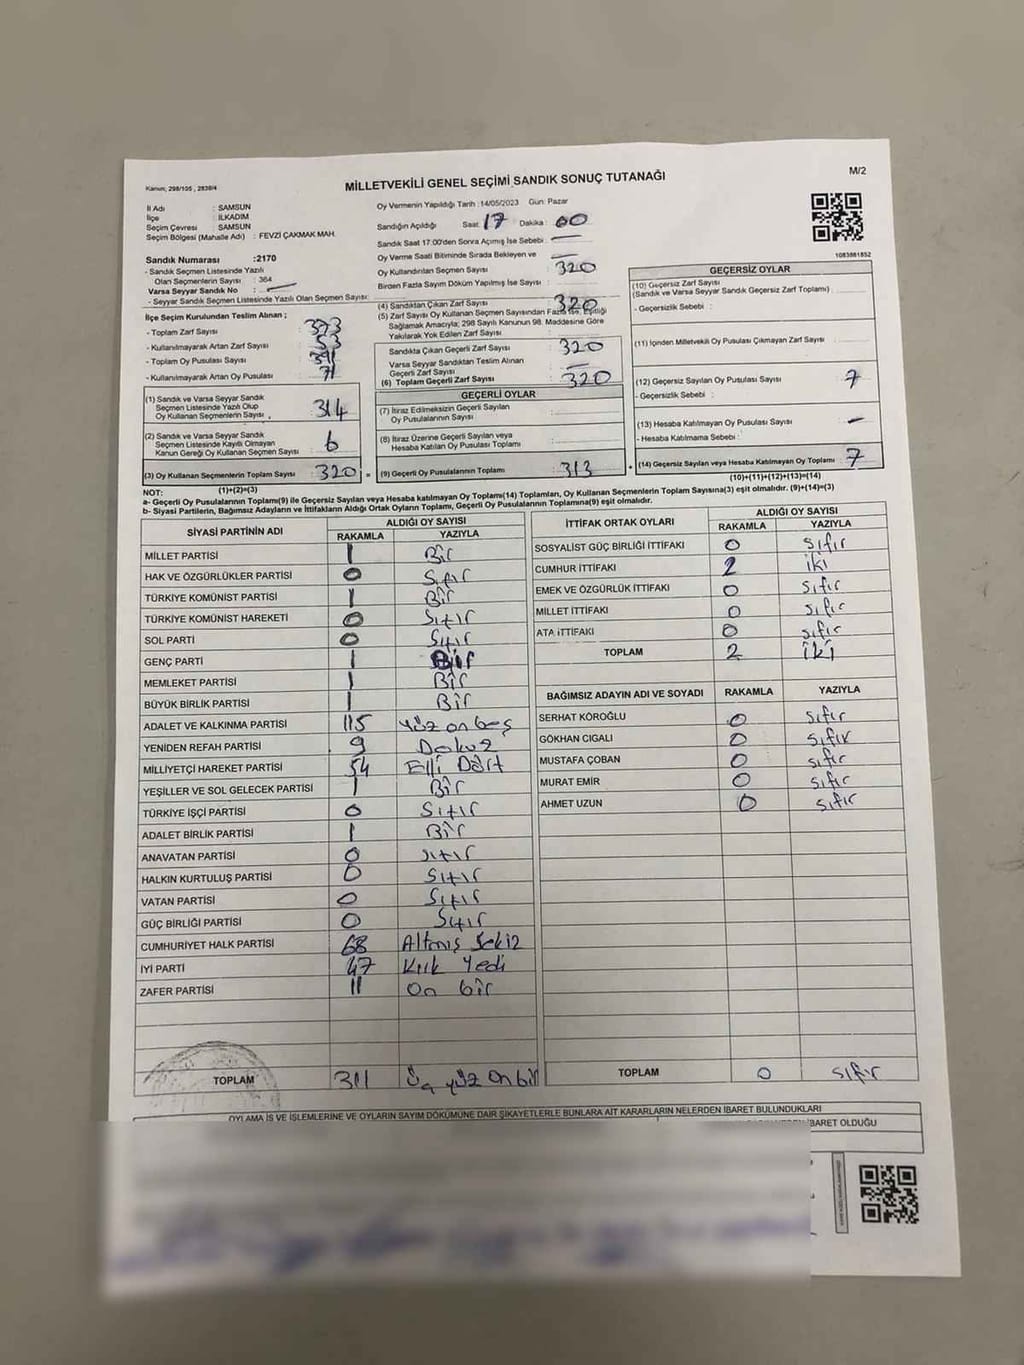 Kanun; 298/105 , 2839/4
MİLLETVEKİLİ GENEL SEÇİMİ SANDIK SONUÇ TUTANAĞI
M/2
İl Adı : SAMSUN
İlçe : İLKADIM
Seçim Çevresi : SAMSUN
Seçim Bölgesi (Mahalle Adı) : FEVZİ ÇAKMAK MAH.
Oy Vermenin Yapıldığı Tarih : 14/05/2023 Gün: Pazar
Sandığın Açıldığı Saat: 17 Dakika : 00
Sandık Saat 17:00'den Sonra Açılmış İse Sebebi : —
Oy Verme Saati Bitiminde Sırada Bekleyen ve : —
Oy Kullandırılan Seçmen Sayısı : 320
Birden Fazla Sayım Döküm Yapılmış İse Sayısı :
1083881852
Sandık Numarası :2170
- Sandık Seçmen Listesinde Yazılı
Olan Seçmenlerin Sayısı : 364
Varsa Seyyar Sandık No : —
- Seyyar Sandık Seçmen Listesinde Yazılı Olan Seçmen Sayısı:
İlçe Seçim Kurulundan Teslim Alınan ;
- Toplam Zarf Sayısı : 373
- Kullanılmayarak Artan Zarf Sayısı : 53
- Toplam Oy Pusulası Sayısı : 391
- Kullanılmayarak Artan Oy Pusulası : 71
(1) Sandık ve Varsa Seyyar Sandık
Seçmen Listesinde Yazılı Olup
Oy Kullanan Seçmenlerin Sayısı : 314
(2) Sandık ve Varsa Seyyar Sandık
Seçmen Listesinde Kayıtlı Olmayan
Kanun Gereği Oy Kullanan Seçmen Sayısı : 6
(3) Oy Kullanan Seçmenlerin Toplam Sayısı : 320 =
(1)+(2)=(3)
(4) Sandıktan Çıkan Zarf Sayısı : 320
(5) Zarf Sayısı Oy Kullanan Seçmen Sayısından Fazla ise, Eşitliği
Sağlamak Amacıyla; 298 Sayılı Kanunun 98. Maddesine Göre
Yakılarak Yok Edilen Zarf Sayısı :
Sandıkta Çıkan Geçerli Zarf Sayısı : 320
Varsa Seyyar Sandıktan Teslim Alınan
Geçerli Zarf Sayısı : —
(6) Toplam Geçerli Zarf Sayısı : 320
GEÇERLİ OYLAR
(7) İtiraz Edilmeksizin Geçerli Sayılan
Oy Pusulalarının Sayısı :
(8) İtiraz Üzerine Geçerli Sayılan veya
Hesaba Katılan Oy Pusulası Toplamı :
(9) Geçerli Oy Pusulalarının Toplamı : 313 +
GEÇERSİZ OYLAR
(10) Geçersiz Zarf Sayısı
(Sandık ve Varsa Seyyar Sandık Geçersiz Zarf Toplamı) :
- Geçersizlik Sebebi :
(11) İçinden Milletvekili Oy Pusulası Çıkmayan Zarf Sayısı :
(12) Geçersiz Sayılan Oy Pusulası Sayısı : 7
- Geçersizlik Sebebi :
(13) Hesaba Katılmayan Oy Pusulası Sayısı : —
- Hesaba Katılmama Sebebi :
(14) Geçersiz Sayılan veya Hesaba Katılmayan Oy Toplamı : 7
(10)+(11)+(12)+(13)=(14)
NOT:
a- Geçerli Oy Pusulalarının Toplamı(9) ile Geçersiz Sayılan veya Hesaba katılmayan Oy Toplamı(14) Toplamları, Oy Kullanan Seçmenlerin Toplam Sayısına(3) eşit olmalıdır. (9)+(14)=(3)
b- Siyasi Partilerin, Bağımsız Adayların ve İttifakların Aldığı Ortak Oyların Toplamı, Geçerli Oy Pusulalarının Toplamına(9) eşit olmalıdır.
SİYASİ PARTİNİN ADI ALDIĞI OY SAYISI
RAKAMLA YAZIYLA
MİLLET PARTİSİ 1 Bir
HAK VE ÖZGÜRLÜKLER PARTİSİ 0 Sıfır
TÜRKİYE KOMÜNİST PARTİSİ 1 Bir
TÜRKİYE KOMÜNİST HAREKETİ 0 Sıfır
SOL PARTİ 0 Sıfır
GENÇ PARTİ 1 Bir
MEMLEKET PARTİSİ 1 Bir
BÜYÜK BİRLİK PARTİSİ 1 Bir
ADALET VE KALKINMA PARTİSİ 115 Yüz on beş
YENİDEN REFAH PARTİSİ 9 Dokuz
MİLLİYETÇİ HAREKET PARTİSİ 54 Elli Dört
YEŞİLLER VE SOL GELECEK PARTİSİ 1 Bir
TÜRKİYE İŞÇİ PARTİSİ 0 Sıfır
ADALET BİRLİK PARTİSİ 1 Bir
ANAVATAN PARTİSİ 0 Sıfır
HALKIN KURTULUŞ PARTİSİ 0 Sıfır
VATAN PARTİSİ 0 Sıfır
GÜÇ BİRLİĞİ PARTİSİ 0 Sıfır
CUMHURİYET HALK PARTİSİ 68 Altmış Sekiz
İYİ PARTİ 47 Kırk Yedi
ZAFER PARTİSİ 11 On bir
TOPLAM 311 Üç yüz On bir
İTTİFAK ORTAK OYLARI ALDIĞI OY SAYISI
RAKAMLA YAZIYLA
SOSYALİST GÜÇ BİRLİĞİ İTTİFAKI 0 sıfır
CUMHUR İTTİFAKI 2 iki
EMEK VE ÖZGÜRLÜK İTTİFAKI 0 sıfır
MİLLET İTTİFAKI 0 sıfır
ATA İTTİFAKI 0 sıfır
TOPLAM 2 iki
BAĞIMSIZ ADAYIN ADI VE SOYADI RAKAMLA YAZIYLA
SERHAT KÖROĞLU 0 sıfır
GÖKHAN CIGALI 0 sıfır
MUSTAFA ÇOBAN 0 sıfır
MURAT EMİR 0 sıfır
AHMET UZUN 0 sıfır
TOPLAM 0 sıfır
OYLAMA İŞ VE İŞLEMLERİNE VE OYLARIN SAYIM DÖKÜMÜNE DAİR ŞİKAYETLERLE BUNLARA AİT KARARLARIN NELERDEN İBARET BULUNDUKLARI
İBARET OLDUĞU